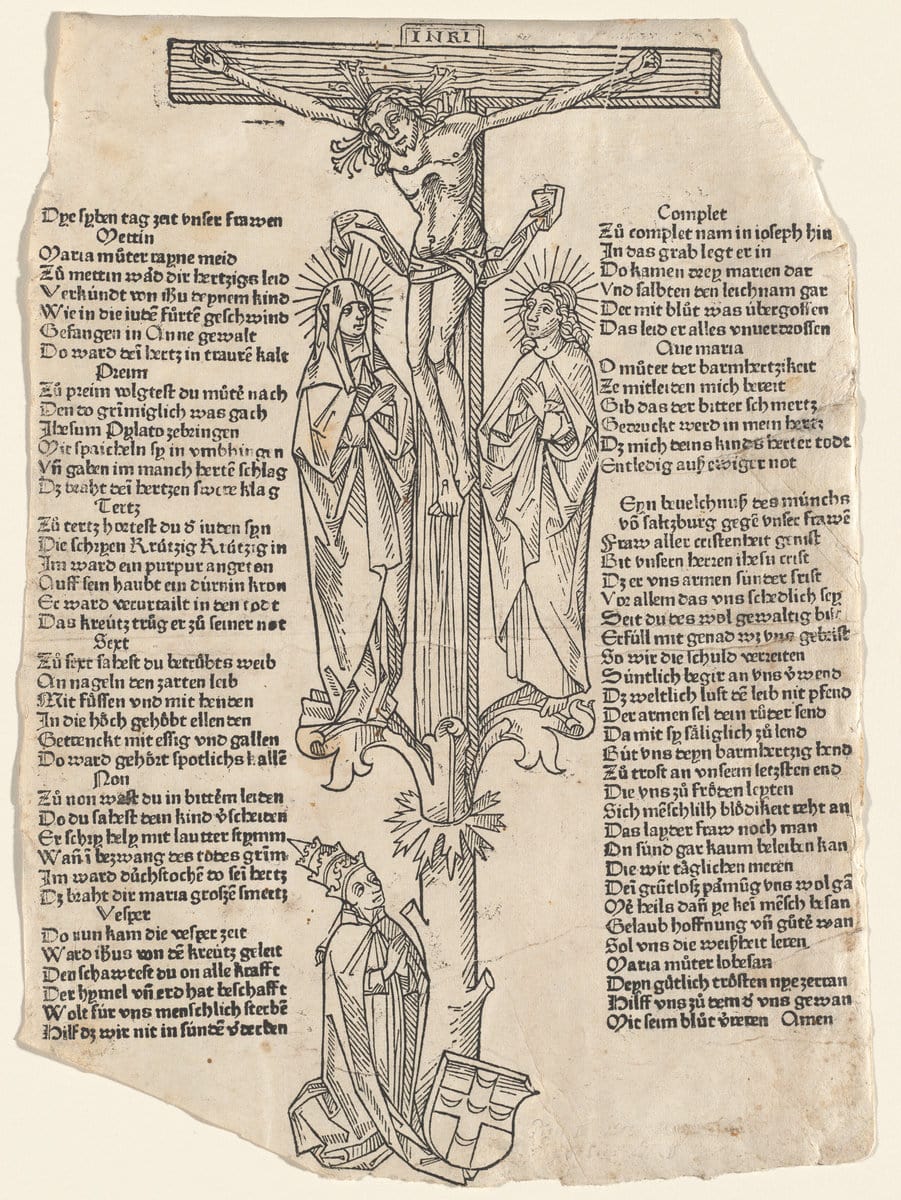 INRI
Dye syben tag zeit vnser frawen
Mettin
Maria můter rayne meid
Zů mettin wåd dir hertzigs leid
Verkündt von ihu deynem kind
Wie in die iudē fůrtē geschwind
Gefangen in Anne gewalt
Do ward dei hertz in traurē kalt
Preim
Zů preim volgtest du můtē nach
Den do grīmiglich was gach
Jhesum Pylato zebringen
Mit spaicheln sy in vmbhingen
Vn̄ gaben im manch hertē schlag
Dz braht dei hertzen swere klag
Tertz
Zů tertz hortest du d iuden syn
Die schryen Krůtzig Krůtzig in
Jm ward ein purpur angeton
Auff sein haubt ein důrnin kron
Er ward verurtailt in den todt
Das kreütz trůg er zů seiner not
Sext
Zů sext sahest du betrůbts weib
An nageln den zarten leib
Mit fůssen vnd mit henden
Jn die hôch gehôbt ellenden
Getrenckt mit essig vnd gallen
Do ward gehôrt spotlichs kallē
Non
Zů non wast du in bittērn leiden
Do du sahest dein kind v̄scheiden
Er schry hely mit lautter stymm
Wan̄ ī bezwang des todes grīm
Jm ward důchstochē do sei hertz
Dz braht dir maria grossē smertz
Vesper
Do nun kam die vesper zeit
Ward ihus von dē kreütz geleit
Den schawtest du on alle krafft
Der hymel vn̄ erd hat beschafft
Wolt für vns menschlich sterbē
Hilf dz wir nit in sündē v̄derben
Complet
Zů complet nam in ioseph hin
Jn das grab legt er in
Do kamen drey marien dar
Vnd salbten den leichnam gar
Der mit blůt was übergossen
Das leid er alles vnuerdrossen
Aue maria
O můter der barmhertzikeit
Ze mitleiden mich bereit
Gib das der bitter schmertz
Gedruckt werd in mein hertz
Dz mich deins kinds herter todt
Entledig auß ewiger not
Eyn beuelchnuß des münchs
vō saltzburg gegē vnser frawē
Fraw aller cristenheit genist
Bit vnsern herren ihesu crist
Dz er vns armen sünder frist
Vor allem das vns schedlich sey
Seit du des wol gewaltig bist
Erfüll mit genad wz vns gebrist
So wir die schuld verreiten
Süntlich begir an vns v̄wend
Dz weltlich lust dē leib nit pfend
Der armen sel dein růder send
Da mit sy säliglich zů lend
Büt vns deyn barmhertzig hend
Zů trost an vnserm letzsten end
Die vns zů frôden leyten
Sich mēschlilh blôdikeit teht an
Das layder fraw noch man
On sünd gar kaum beleiben kan
Die wir täglichen meren
Dei grůtloß pármůg vns wol gā
Mē heils dan̄ ye kei mēsch besan
Gelaub hoffnung vn̄ gůtē wan
Sol vns die weißheit leren
Maria můter lobesan
Deyn gůtlich trôsten nye zerran
Hilff vns zů dem d vns gewan
Mit seim blůt v̄reren Amen